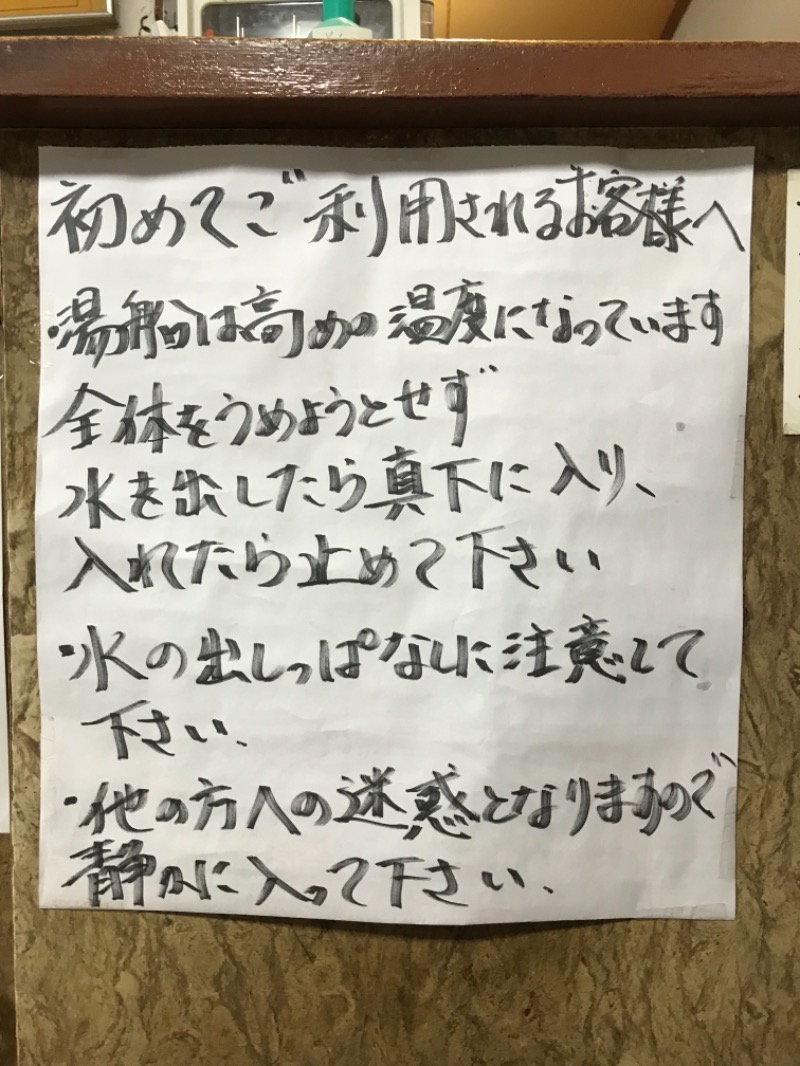 初めてご利用されるお客様へ
・湯船は高めの温度になっています
全体をうめようとせず
水を出したら真下に入り、
入れたら止めて下さい
・水の出しっぱなしに注意して
下さい、
・他の方への迷惑となりますので
静かに入って下さい、